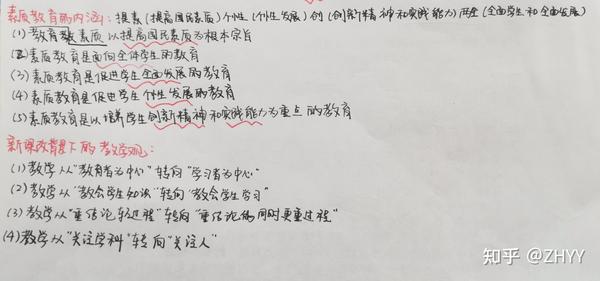 素质教育的内涵：提素(提高国民素质)个性(个性发展)创(创新精神和实践能力)两全(全面学生和全面发展)
(1)教育素质以提高国民素质为根本宗旨
(2)素质教育是面向全体学生的教育
(3)素质教育是促进学生全面发展的教育
(4)素质教育是促进学生个性发展的教育
(5)素质教育是以培养学生创新精神和实践能力为重点的教育
新课改背景下的教学观：
(1)教学从“教育者为中心”转向“学习者为中心”
(2)教学从“教会学生知识”转向“教会学生学习”
(3)教学从“重结论轻过程”转向“重结论的同时更重过程”
(4)教学从“关注学科”转向“关注人”
知乎 @ZHYY